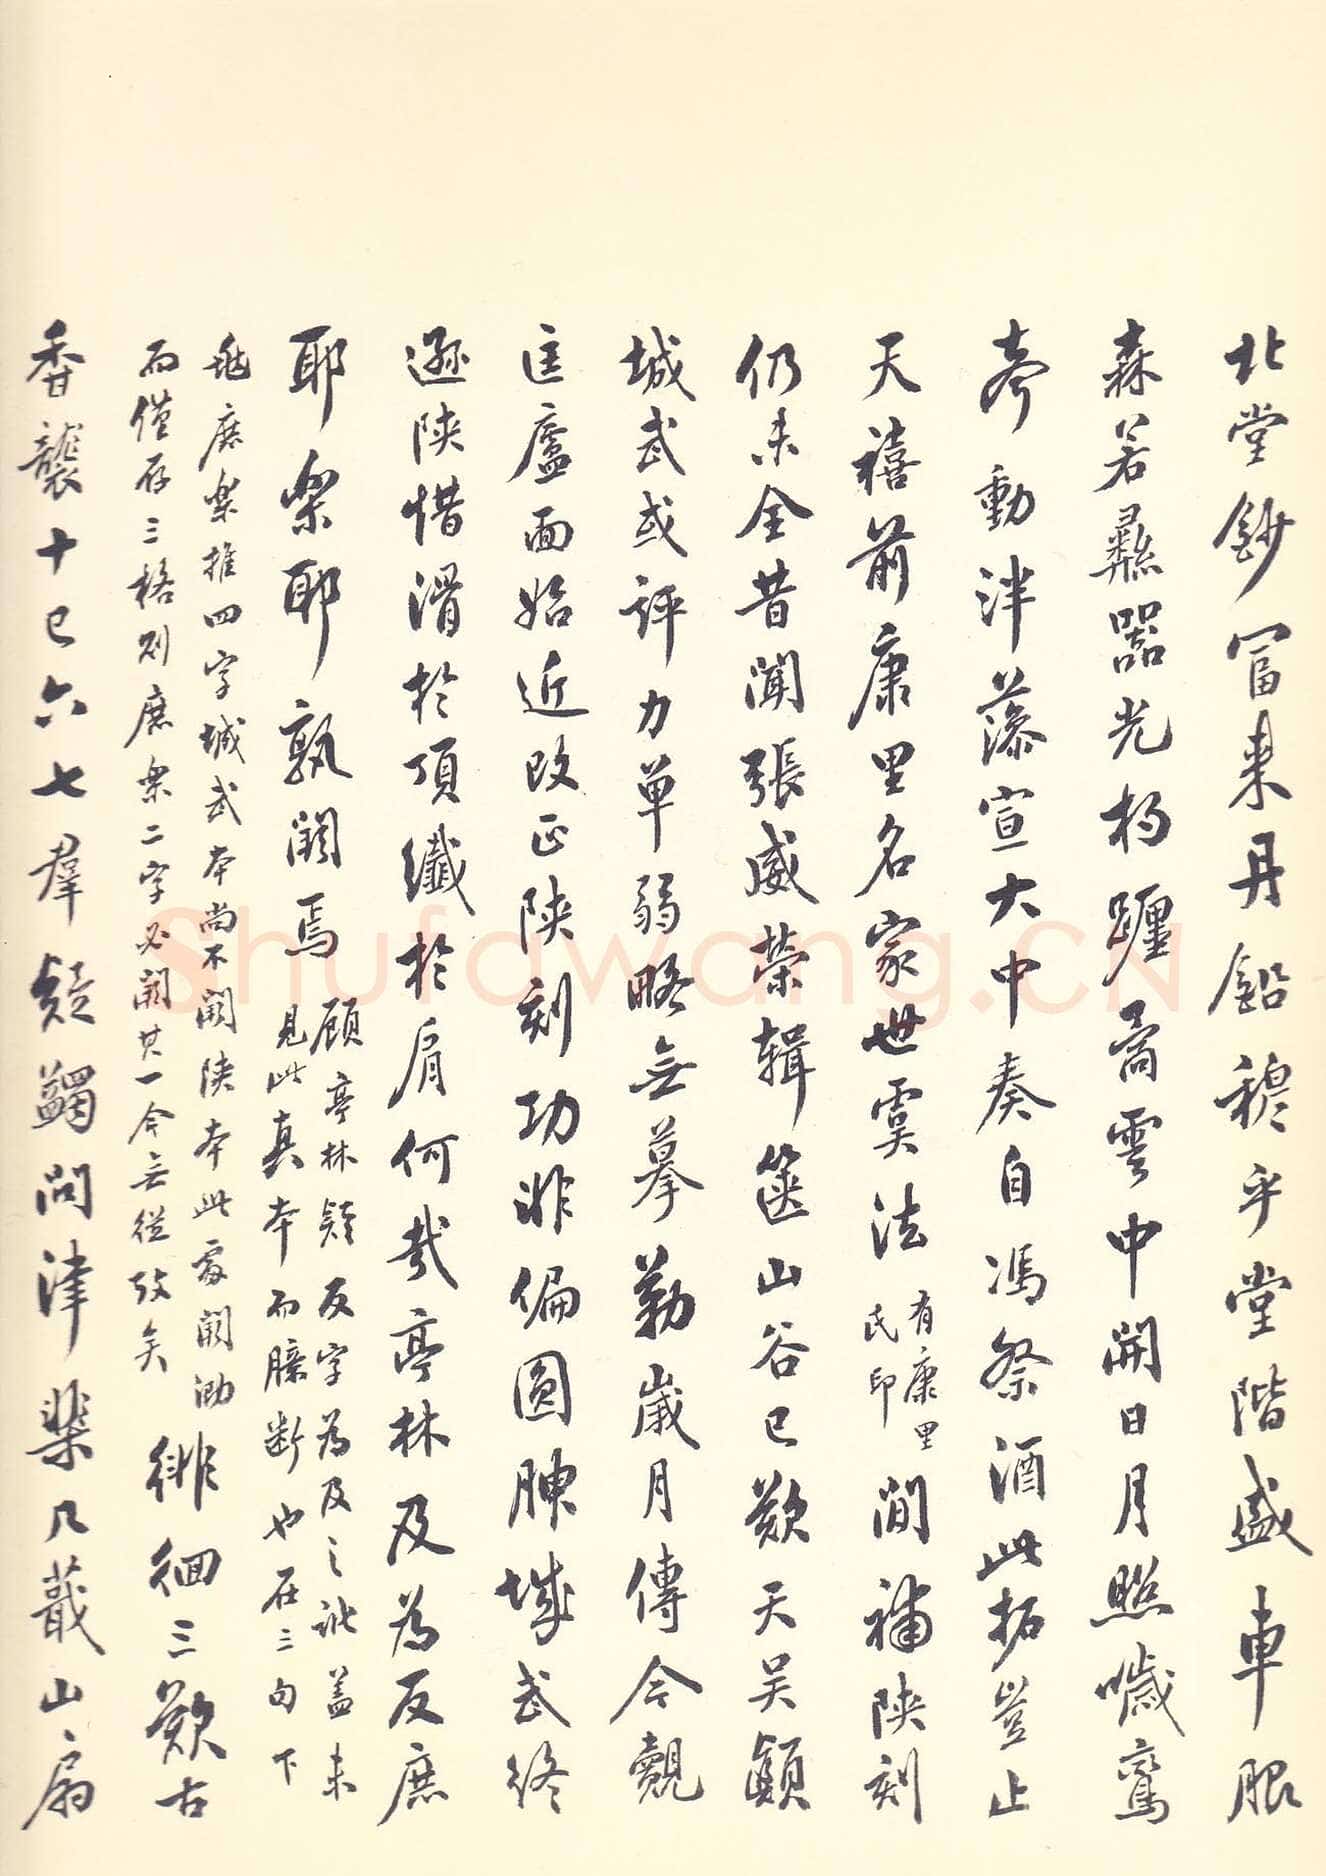 北堂鈔冨来丹鉛穆乎堂階盛車服
森若彞器光杓躔矞雲中開日月照噦鸞
旂動泮藻宣大中奏自馮祭酒此拓豈止
天禧前康里名家世寞法
有康里
氏印
間補陝刻
仍未全昔聞張威榮輯箧山谷已歎天吴顛
城武或評力單弱略無摹勒歲月傳今覿
匡廬面始近改正陝刻功非偏圓腴城武終
遜陝惜滑於項纖於肩何哉亭林及為反庶
耶樂耶孰闕焉
顧亭林疑反字為及之訛盖未
見此真本而臆断也在三句下
兆庶樂推四字城武本尚不闕陝本此處闕泐
而僅存三格則庶樂二字必闕其一今無從攷矣
徘徊三歎古
香襲十已六七羣疑蠲問津棐几蕺山扇
Shufawang.CN